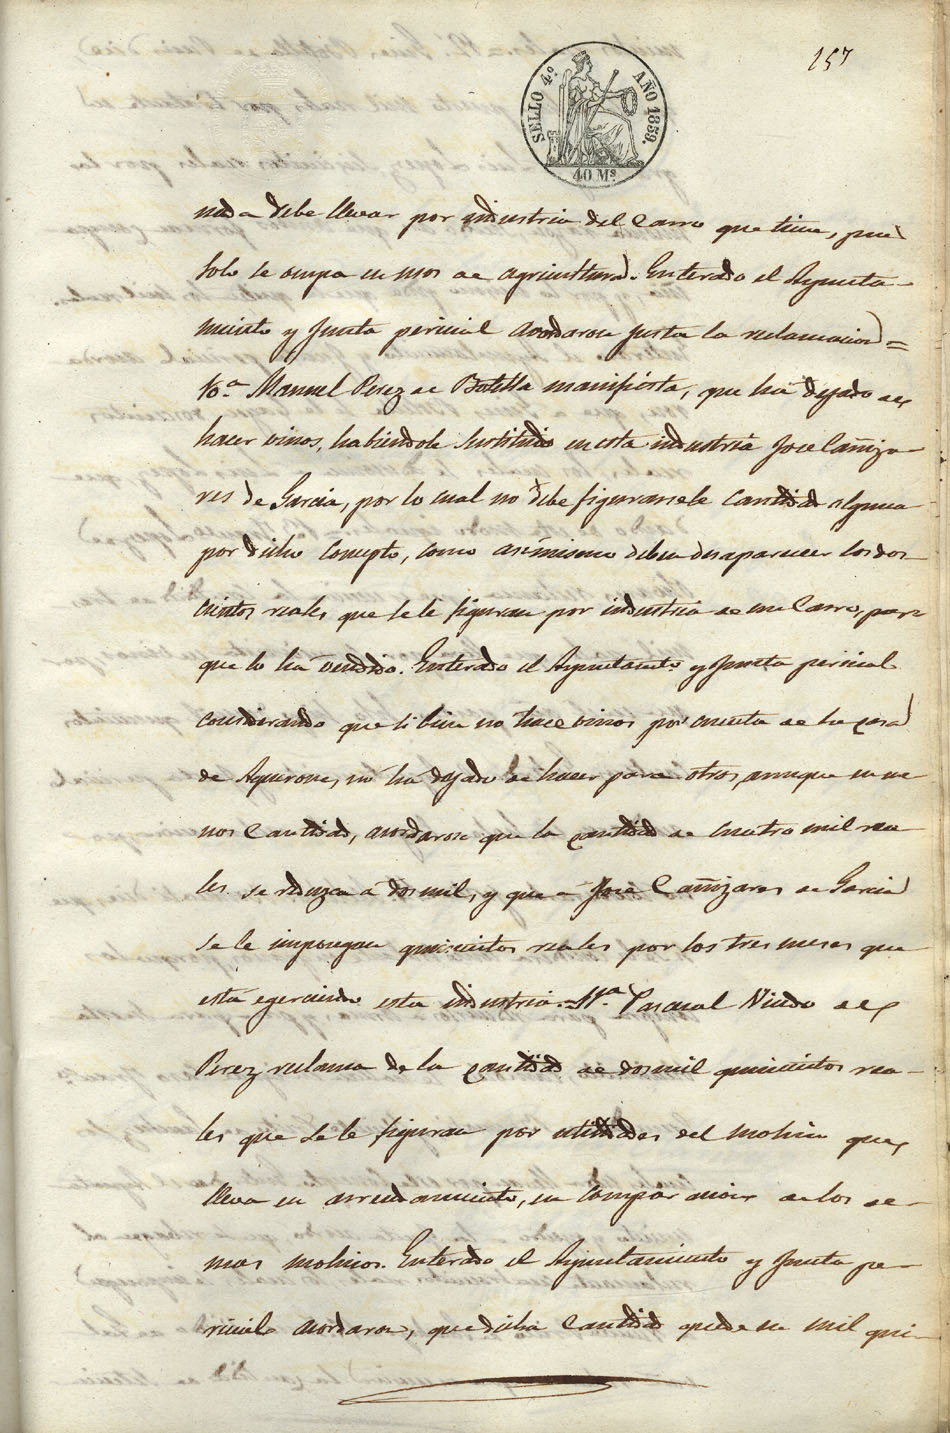 157
SELLO 4º AÑO 1859.
40 Ms
nada debe llevar por industria del Carro que tiene, pues
solo se ocupa en usos de agricultura. Enterado el Ayunta-
miento y Junta pericial acordaron justa la reclamacion=
10.ª Manuel Perez de Botella manifiesta, que ha dejado de
hacer vinos, habiendole sustituido en esta industria Jose Cañiza-
res de Garcia, por lo cual no debe figurarsele cantidad alguna
por dicho concepto, como asimismo deben desaparecer los dos-
cientos reales que se le figuran por industria de un Carro, por
que lo ha vendido. Enterado el Ayuntamto. y Junta pericial
considerando que si bien no hace vinos por cuenta de la casa
de Aguirre, no ha dejado de hacer para otros, aunque en me
nos Cantidad, acordaron que la cantidad de cuatro mil rea
les se reduzca á dos mil, y que á Jose Cañizares de Garcia
se le impongan quinientos reales por los tres meses que
está egerciendo esta industria.=11.ª Pascual Nuedo de
Perez reclama de la cantidad de dos mil quinientos rea-
les que se le figuran por utilidades del molino que
lleva en arrendamiento, en comparacion de los de-
mas molinos. Enterado el Ayuntamiento y Junta pe-
ricial acordaron, que dicha Cantidad quede en mil qui-